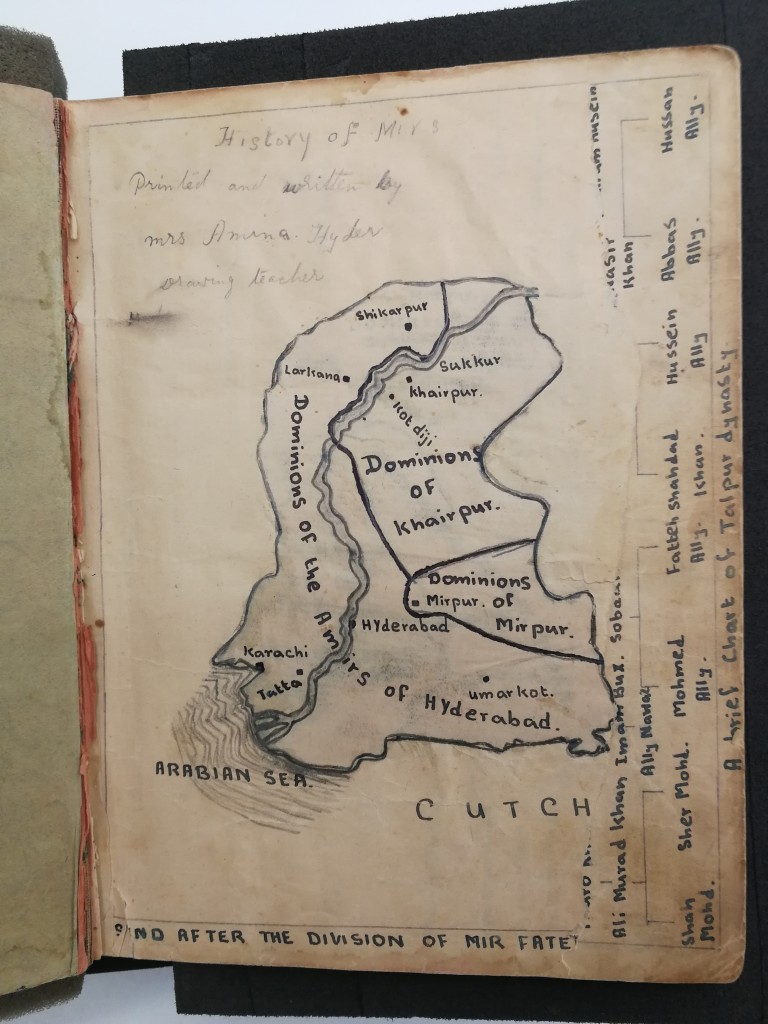 History of Mirs
Printed and written by
mrs Amina. Hyder
Drawing teacher
Shikarpur
Larkana
Sukkur
Khairpur.
Kot diji
Dominions
of
Khairpur.
Dominions of the Amirs of Hyderabad.
Dominions
of
Mirpur.
Mirpur.
Hyderabad
Karachi
Tatta
umarkot.
ARABIAN SEA.
CUTCH
AFTER THE DIVISION OF MIR
Khan
Ali Murad Khan Imam Bux.
Ally Nawaz
Shah Mohd.
Sher Mohd.
Mohmed Ally.
Fatteh Ally.
Shahdad Khan.
Hussein Ally
Abbas Ally.
Hussan Ally.
A brief Chart of Talpur dynasty